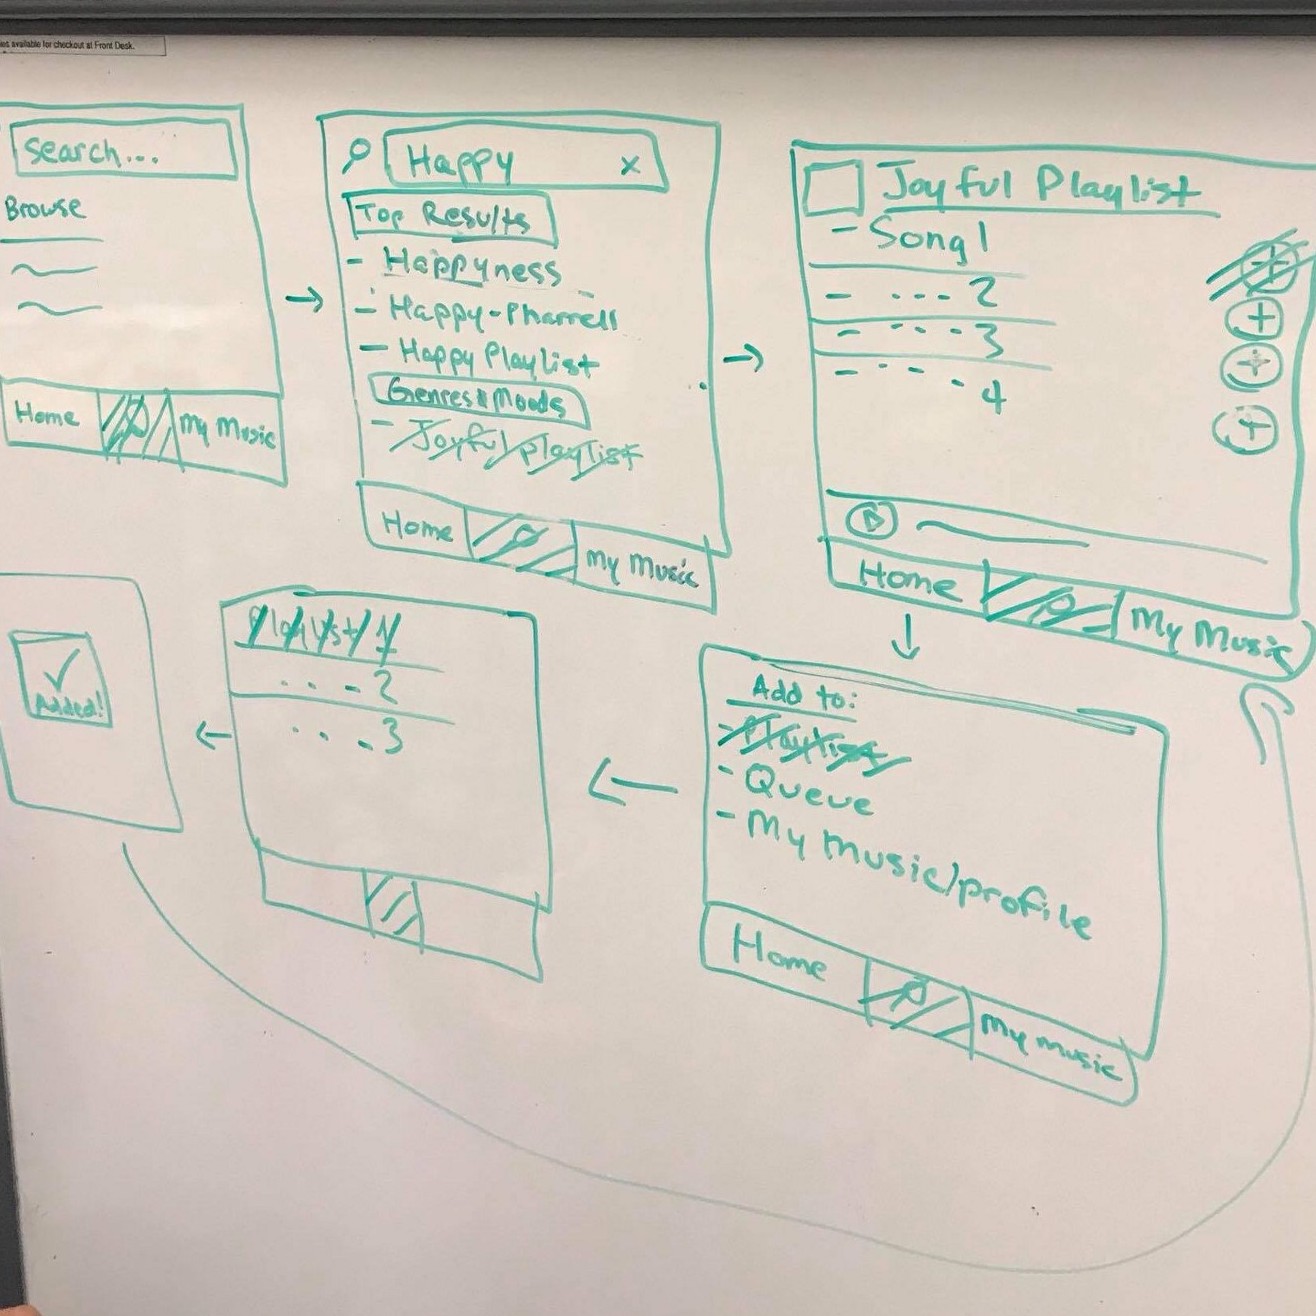 ies available for checkout at Front Desk.
Search...
Browse
Home
My Music
Happy x
Top Results
- Happyness
- Happy-Pharrell
- Happy Playlist
Genres & Moods
- Joyful playlist
Home
My Music
Joyful Playlist
- Song 1 +
- ... 2 +
- ... 3 +
- ... 4 +
Home
My Music
Add to:
- Playlist
- Queue
- My Music/profile
Home
My music
Playlist 1
... 2
... 3
Added!